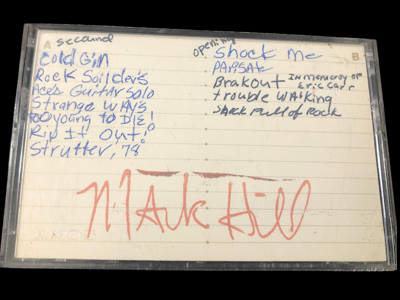 A secound
Cold Gin
Rock Soilders
Aces Guitar Solo
Strange WAYS
too young to DIE!
Rip It Out!
Strutter, 78
opening B
Shock Me
PARASAte
Brakout IN memory of Eric Carr
trouble WAlking
Shock Full of Rock
MArk Hill